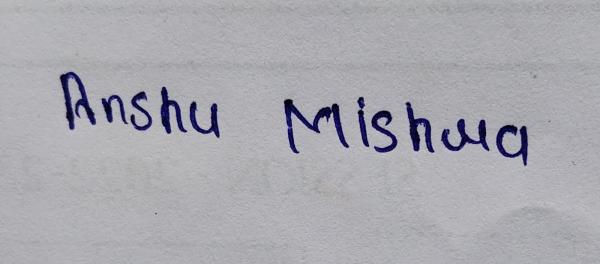 Anshu Mishra